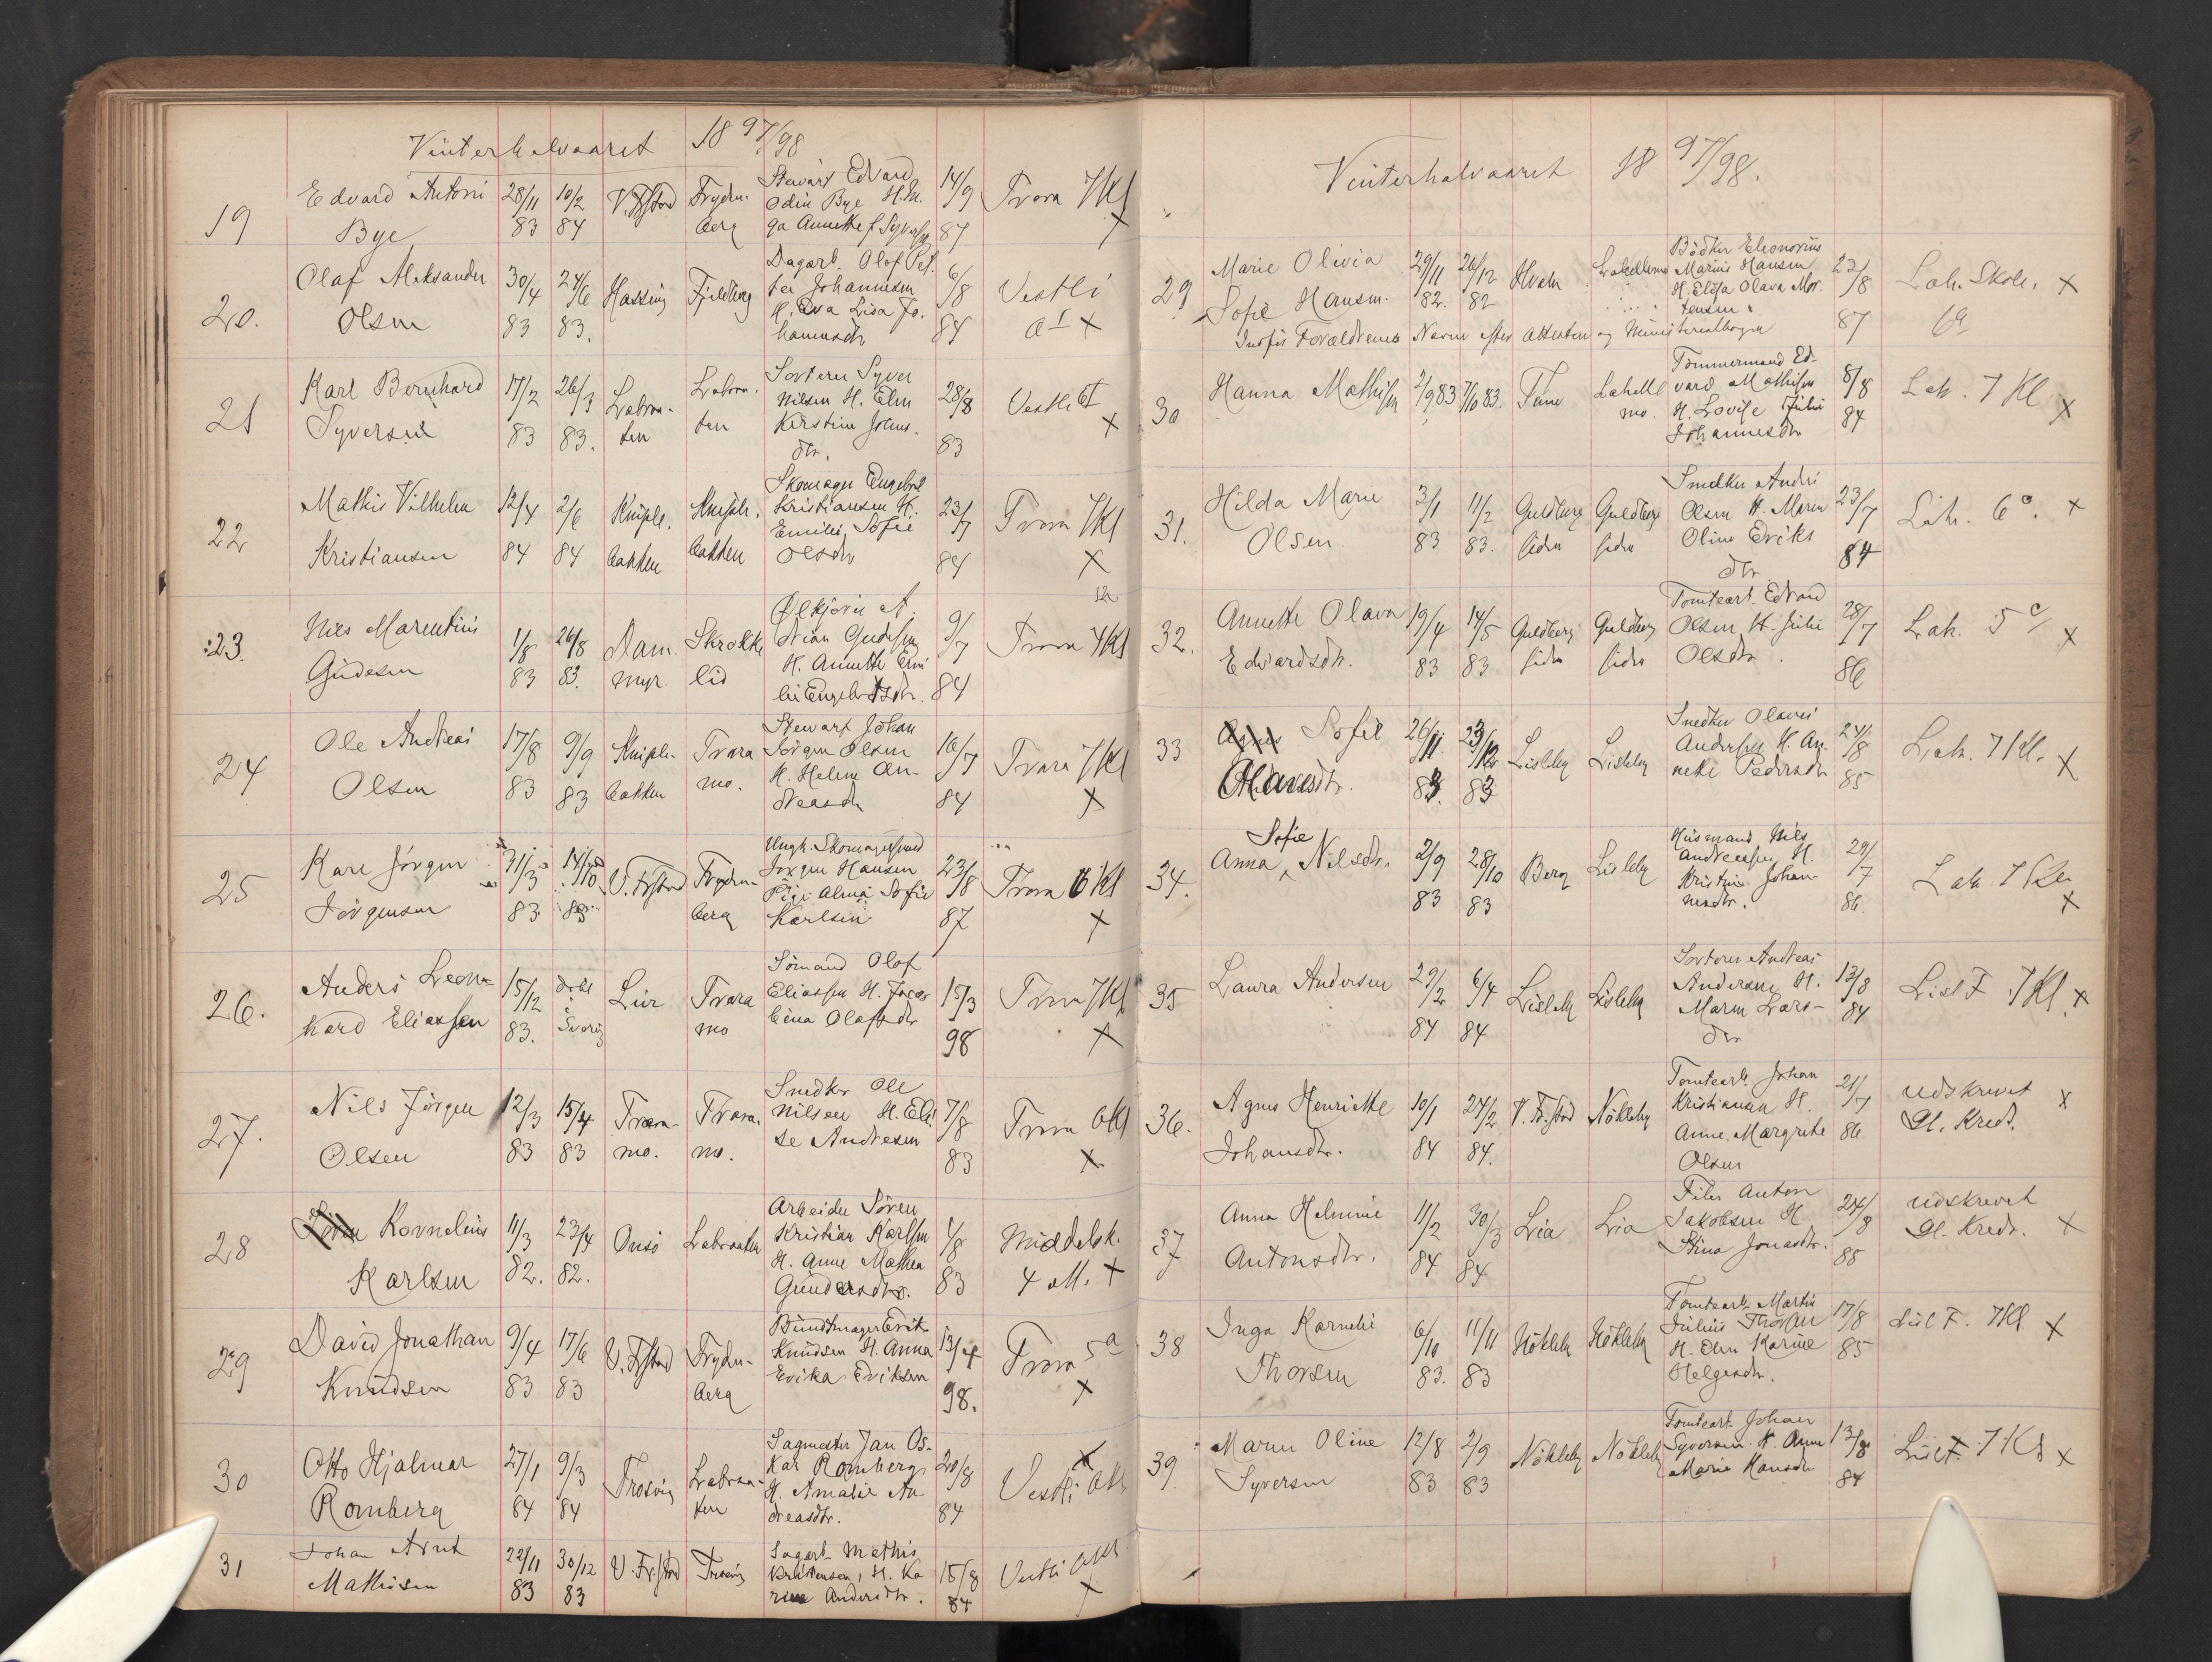 Vinterhalvaaret 1897/98
19 Edvard Antoni Bye 28/11 83 10/2 84 V. Fr.stad Frydenberg Stewart Edvard Odin Bye H. M. ga Annette f. Syvers 14/9 87 Trara 7Kl X
20. Olaf Aleksander Olsen 30/4 83 24/6 83. Hassing Fjeldberg Dagarb. Olof Petter Johannesen H. Eva Lisa Johannesdr 6/8 84 Vestli X
21 Karl Bernhard Syversen 17/2 83 26/3 83. Labraaten Labraaten Sorterer Syver Nilsen H. Elen Kirstine Johns. dtr. 28/8 83 Vestli X
22 Mathis Vilhelm Kristiansen 12/4 84 2/6 84 Kniplebakken Kniplebakken Skomager Engebret Kristiansen H. Emilie Sofie Olsdr 23/7 84 Trara 7Kl X
23. Nils Marentius Gudesen 1/8 83 26/8 83. Dammyr Skrokkelid Ølkjører A. drian Gudesen H. Annette Emilie Engebretsdr. 9/7 84 Trara 7Kl
24 Ole Andreas Olsen 17/8 83 9/9 83 Kniplebakken Traramo. Stewart Johan Jørgen Olsen H. Helene Andreasdr 16/7 84 Trara 7Kl X
25 Karl Jørgen Jørgensen 31/3 83 14/10 83 V. Fr.stad Frydenberg Ungk. Skomagersvend Jørgen Hansen Pige Alma Sofie Karlsen 23/8 87 Trara 6 Kl X
26. Anders Leonhard Eliassen 15/12 83. Døbt i Sverig Lur Traramo Sømand Olof Eliassen H. Jacobina Olafsdr 15/3 98 Trara 7Kl X
27. Nils Jørgen Olsen 12/3 83 15/4 83 Traramo. Traramo. Snedker Ole Nilsen H. Elise Andresen 7/8 83 Trara 6Kl X
28 Kornelius Karlsen 11/3 82. 23/4 82. Onsø Labraaten Arbeider Søren Kristian Karlsen H. Anne Mathea Gundersdtr. 1/8 83 Middelsk. 4 X
29 David Jonathan Knudsen 9/4 83 17/6 83 V. Fr.stad Frydenberg Buntmager Erik Knudsen H. Anna Erika Eriksen 13/4 98. Trara 5a X
30 Otto Hjalmar Romberg 27/1 84 9/3 84 Trosvig Labraaten Sagmester Jan Oskar Romberg H. Amalie Andreasdtr. 20/8 84 Vestli 6Kl X
31 Johan Arnt Mathisen 22/11 83 30/12 83 V. Fr.stad Trosvig Sagarb. Mathis Kristensen, H. Karine Andersdtr. 15/8 84 Vestli 6Kl X
Vinterhalvaaret 1897/98.
29 Marie Olivia Sofie Hansen. 29/11 82. 26/12 82 Hvaler Lahellemo Bødker Eleonorius Marius Hansen H. Elisa Olava Mortensen 23/8 87 Lah. Skole. 6a X
Indført Forældrenes Navne efter attesten og Ministerialbogen
30 Hanna Mathisen 2/9 83 7/10 83. Tune Lahellemo. Tømmermand Edvard Mathisen H. Lovise Julie Johannesdr 8/8 84 Lah. 7 Kl X
31. Hilda Marie Olsen 3/1 83 11/2 83. Guldbergsiden Guldbergsiden Snedker Andr. Olsen H. Maren Oline Eriksdtr 23/7 84 Lah. 6a. X
32. Annette Olava Edvardsdtr. 19/4 83 14/5 83 Guldbergsiden Guldbergsiden Tomtearb. Edvard Olsen H. Julie Olsdtr. 28/7 86 Lah. 5c X
33 Sofie Olavesdtr. 26/11 83. 23/12 83 Lisleby Lisleby Snedker Olaves Andersen H. Anneke Pedersdr 24/8 85 Lah. 7 Kl. X
34. Anna Sofie Nilsdtr. 2/9 83 28/10 83 Berg Lisleby Husmand Nils Andreassen H. Kristine Johannesdtr. 29/7 86. Lah. 7 Kl. X
35 Laura Andersen 29/2 84 6/4 84 Lisleby Lisleby Sorterer Andreas Andersen H. Maren Larsdtr 13/8 84 Lisl. F 7Kl. X
36. Agnes Henriette Johansdtr. 10/1 84 24/2 84. V. Fr.stad Nökleby Tomtearb. Johan Kristiansen H. Anne Margrete Olsen 21/7 86 udskrevet Gl. Kreds. X
37 Anna Helmine Antonsdtr. 11/2 84 30/3 84 Lia Lia Filer Anton Jakobsen H Stina Jonasdtr. 24/8 85 udskrevet Gl. Kreds. X
38 Inga Kornelie Thorsen 6/10 83. 11/11 83 Nökleby Nökleby Tomtearb. Martin Julius Thorsen H. Elen Karine Helgesdr. 17/8 85 Lisl F. 7Kl X
39. Maren Oline Syversen 12/8 83 2/9 83 Nökleby Nökleby Tomtearb. Johan Syversen H. Anne Marie Hansdr 13/8 84 Lisl F. 7Kl X